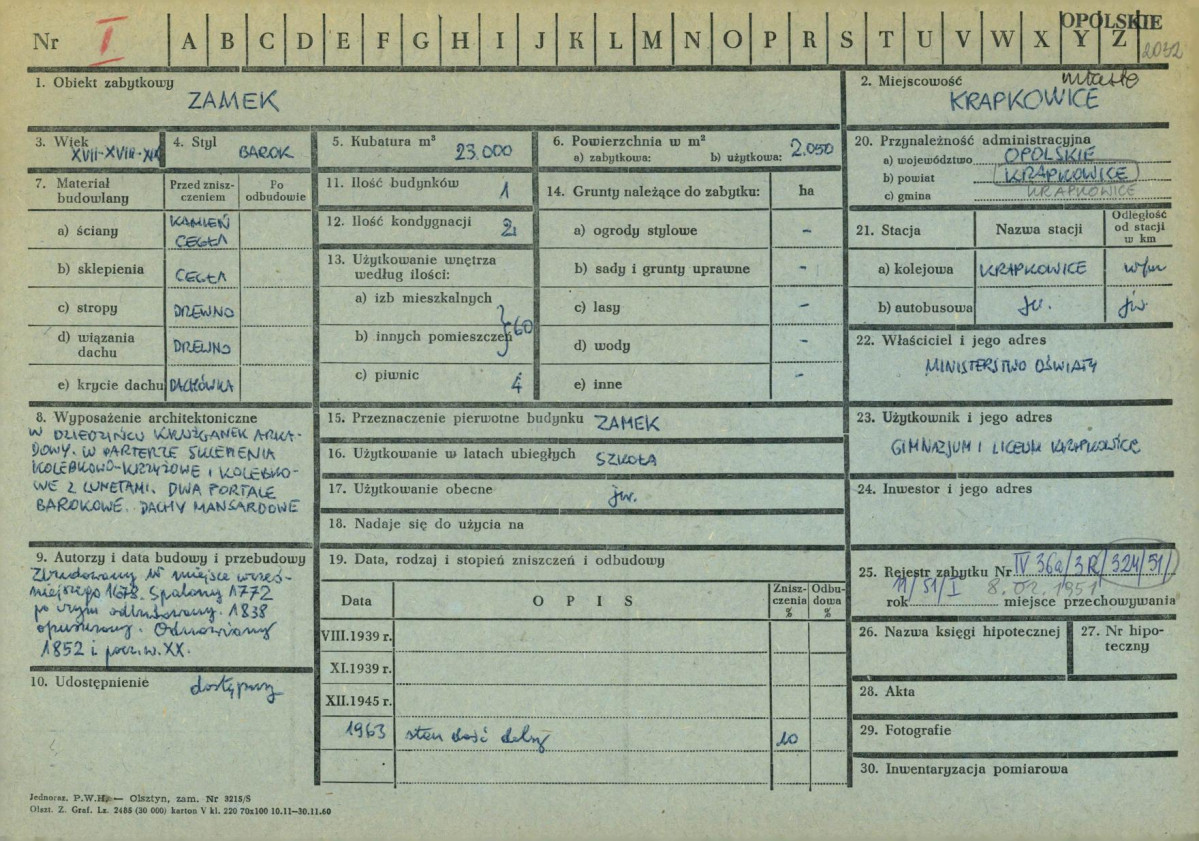 Nr I A B C D E F G H I J K L M N O P R S T U V W X Y Z
OPOLSKIE
2032
1. Obiekt zabytkowy
ZAMEK
2. Miejscowość miasto
KRAPKOWICE
3. Wiek
XVII-XVIII-XIX
4. Styl
BAROK
5. Kubatura m³
23.000
6. Powierzchnia w m²
a) zabytkowa: b) użytkowa: 2.050
20. Przynależność administracyjna
a) województwo OPOLSKIE
b) powiat KRAPKOWICE
c) gmina KRAPKOWICE
7. Materiał budowlany
Przed zniszczeniem
Po odbudowie
a) ściany KAMIEŃ CEGŁA
b) sklepienia CEGŁA
c) stropy DREWNO
d) wiązania dachu DREWNO
e) krycie dachu DACHÓWKA
11. Ilość budynków 1
12. Ilość kondygnacji 2
13. Użytkowanie wnętrza
według ilości:
a) izb mieszkalnych
b) innych pomieszczeń } 60
c) piwnic 4
14. Grunty należące do zabytku: ha
a) ogrody stylowe -
b) sady i grunty uprawne -
c) lasy -
d) wody -
e) inne -
21. Stacja
Nazwa stacji
Odległość
od stacji
w km
a) kolejowa KRAPKOWICE
b) autobusowa jw. jw.
22. Właściciel i jego adres
MINISTERSTWO OŚWIATY
8. Wyposażenie architektoniczne
W DZIEDZIŃCU KRUŻGANEK ARKA-
DOWY. W PARTERZE SKLEPIENIA
KOLEBKOWO-KRZYŻOWE I KOLEBKO-
WE Z LUNETAMI. DWA PORTALE
BAROKOWE. DACHY MANSARDOWE
15. Przeznaczenie pierwotne budynku ZAMEK
16. Użytkowanie w latach ubiegłych SZKOŁA
17. Użytkowanie obecne jw.
18. Nadaje się do użycia na
23. Użytkownik i jego adres
GIMNAZJUM I LICEUM KRAPKOWICE
24. Inwestor i jego adres
9. Autorzy i data budowy i przebudowy
Zbudowany w miejsce wcześ-
niejszego 1678. Spalony 1772
po czym odbudowany. 1838
opuszczony. Odnowiony
1852 i pocz. w. XX.
10. Udostępnienie dostępny
19. Data, rodzaj i stopień zniszczeń i odbudowy
Data
O P I S
Znisz-
czenia
%
Odbu-
dowa
%
VIII.1939 r.
XI.1939 r.
XII.1945 r.
1963 stan dość dobry 10
25. Rejestr zabytku Nr IV 36a/3R/324/51/
11/51/I 8.02.1951
rok miejsce przechowywania
26. Nazwa księgi hipotecznej
27. Nr hipo-
teczny
28. Akta
29. Fotografie
30. Inwentaryzacja pomiarowa
Jednocz. P.W.H. — Olsztyn, zam. Nr 3215/S
Olszt. Z. Graf. Lz. 2485 (30 000) karton V kl. 220 70x100 10.11—30.11.60